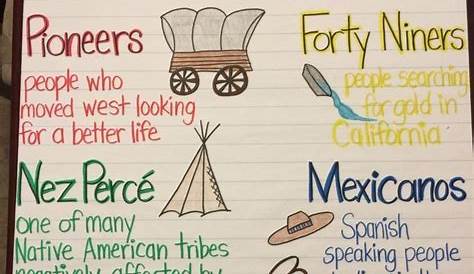 Pioneers
people who
moved west looking
for a better life
Forty Niners
people searching
for gold in
California
Nez Percé
one of many
Native American tribes
negatively affected by
Mexicanos
Spanish
speaking people